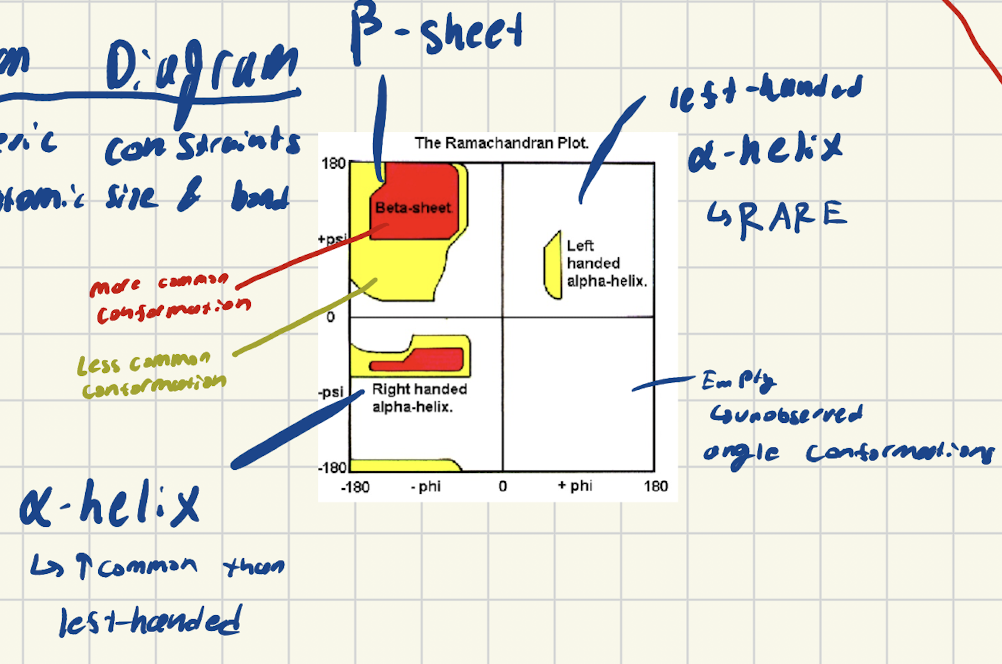 Diagram
β-sheet
constraints
size & bond
left-handed
α-helix
↳ RARE
The Ramachandran Plot.
180
Beta-sheet
+psi
Left
handed
alpha-helix.
more common
conformation
0
Less common
conformation
-psi
Right handed
alpha-helix.
-180
-180 - phi 0 + phi 180
Empty
↳ unobserved
angle conformations
α-helix
↳ ↑ common than
left-handed